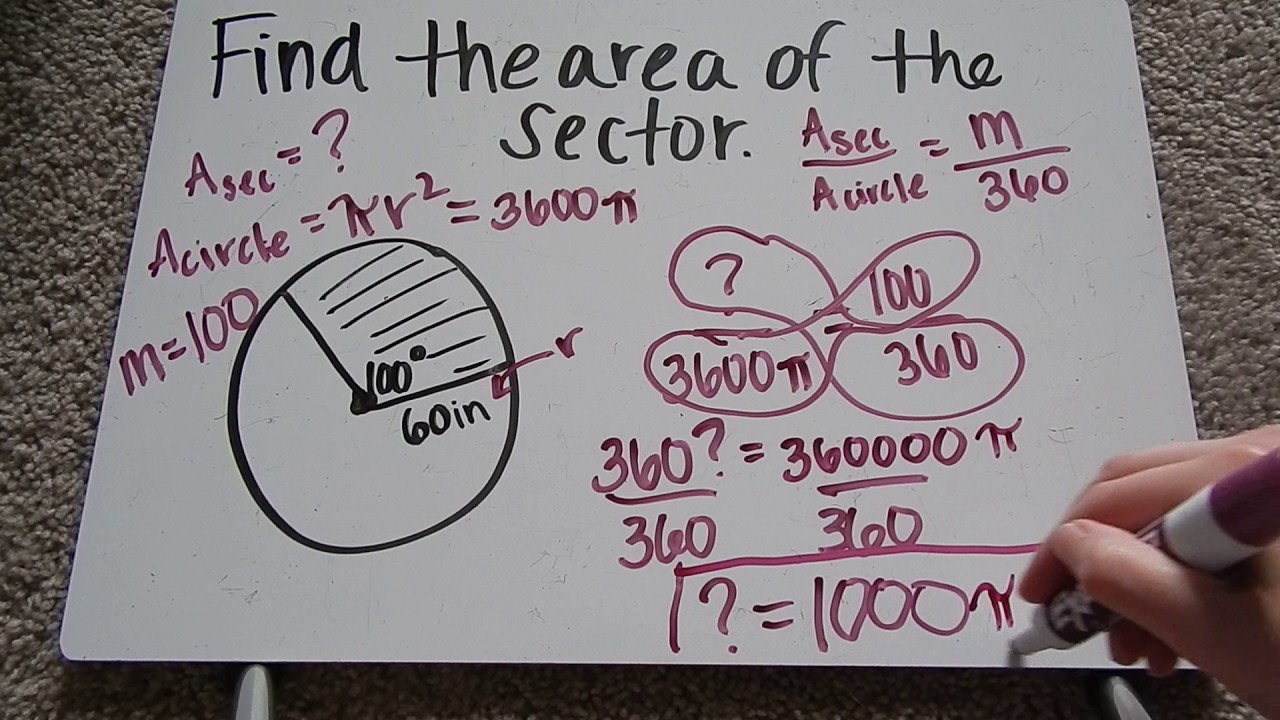 Find the area of the
sector.
Asec = ?
Acircle = πr² = 3600π
m = 100
100°
60in
r
Asec / Acircle = m / 360
? 100
3600π 360
360? = 360000π
360 360
? = 1000π